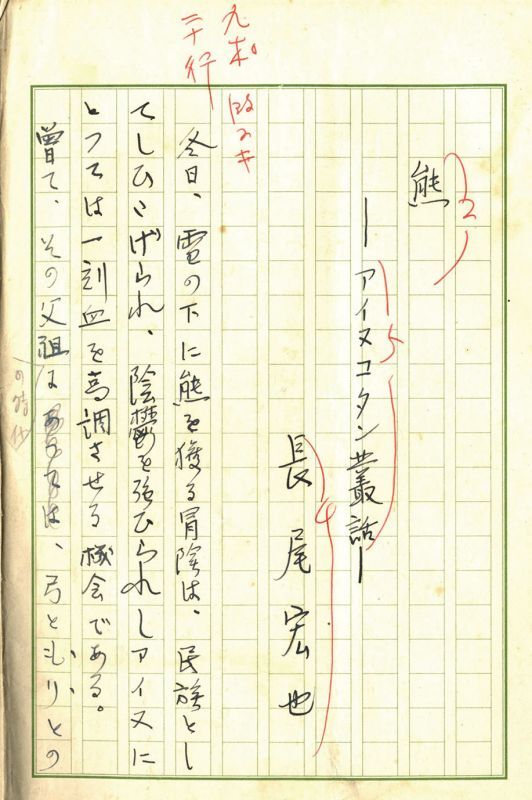 九ポ 二十行
2
熊
15
―アイヌコタン叢話―
4
長尾宏也
冬日、雪の下に熊を獲る冒険は、民族とし
てしひたげられ、陰鬱を強ひられしアイヌに
とつては一刻血を高調させる機会である。
曽て、その父祖は、弓ともりとの